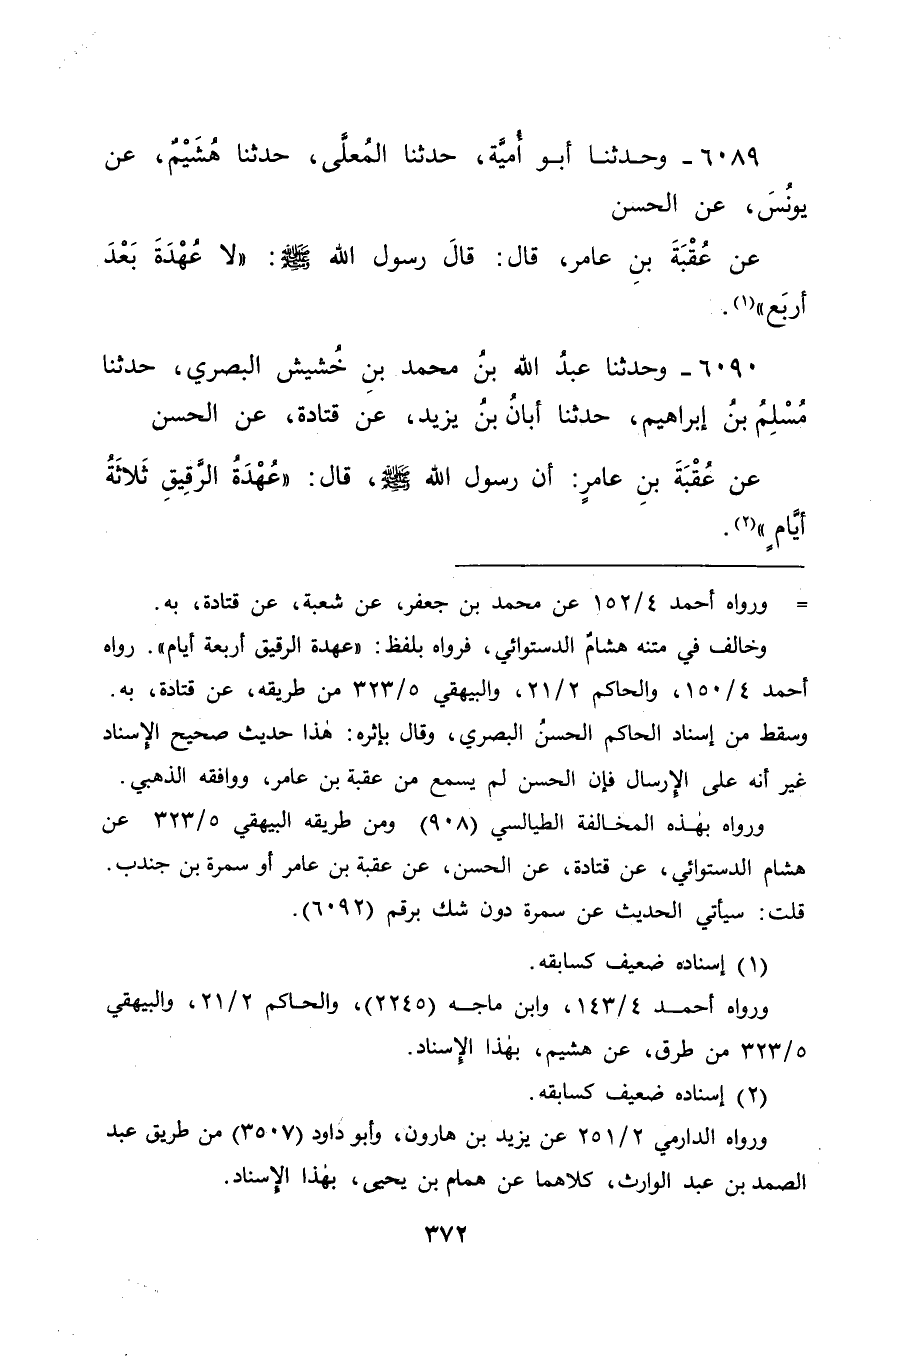 ٦٠٨٩ ـ وحـدثنـا أبـو أُميَّة، حدثنا المُعلَّى، حدثنا هُشَيْمٌ، عن
يونُسَ، عن الحسن
عن عُقْبَةَ بنِ عامر، قال: قالَ رسول الله ﷺ: «لا عُهْدَةَ بَعْدَ
أربَع»(١).
٦٠٩٠ ـ وحدثنا عبدُ الله بنُ محمد بنِ خُشيش البصري، حدثنا
مُسْلِمُ بنُ إبراهيم، حدثنا أبانُ بنُ يزيد، عن قتادة، عن الحسن
عن عُقْبَةَ بنِ عامرٍ: أن رسول الله ﷺ، قال: «عُهْدَةُ الرَّقِيقِ ثَلاثَةُ
أيَّامٍ»(٢).
= ورواه أحمد ١٥٢/٤ عن محمد بن جعفر، عن شعبة، عن قتادة، به.
وخالف في متنه هشامٌ الدستوائي، فرواه بلفظ: «عهدة الرقيق أربعة أيام». رواه
أحمد ١٥٠/٤، والحاكم ٢١/٢، والبيهقي ٣٢٣/٥ من طريقه، عن قتادة، به.
وسقط من إسناد الحاكم الحسنُ البصري، وقال بإثره: هٰذا حديث صحيح الإسناد
غير أنه على الإرسال فإن الحسن لم يسمع من عقبة بن عامر، ووافقه الذهبي.
ورواه بهٰـذه المخـالفة الطيالسي (٩٠٨) ومن طريقه البيهقي ٣٢٣/٥ عن
هشام الدستوائي، عن قتادة، عن الحسن، عن عقبة بن عامر أو سمرة بن جندب.
قلت: سيأتي الحديث عن سمرة دون شك برقم (٦٠٩٢).
(١) إسناده ضعيف كسابقه.
ورواه أحمـــد ١٤٣/٤، وابن ماجـــه (٢٢٤٥)، والحـاكم ٢١/٢، والبيهقي
٣٢٣/٥ من طرق، عن هشيم، بهٰذا الإسناد.
(٢) إسناده ضعيف كسابقه.
ورواه الدارمي ٢٥١/٢ عن يزيد بن هارون، وأبو داود (٣٥٠٧) من طريق عبد
الصمد بن عبد الوارث، كلاهما عن همام بن يحيى، بهٰذا الإسناد.
٣٧٢